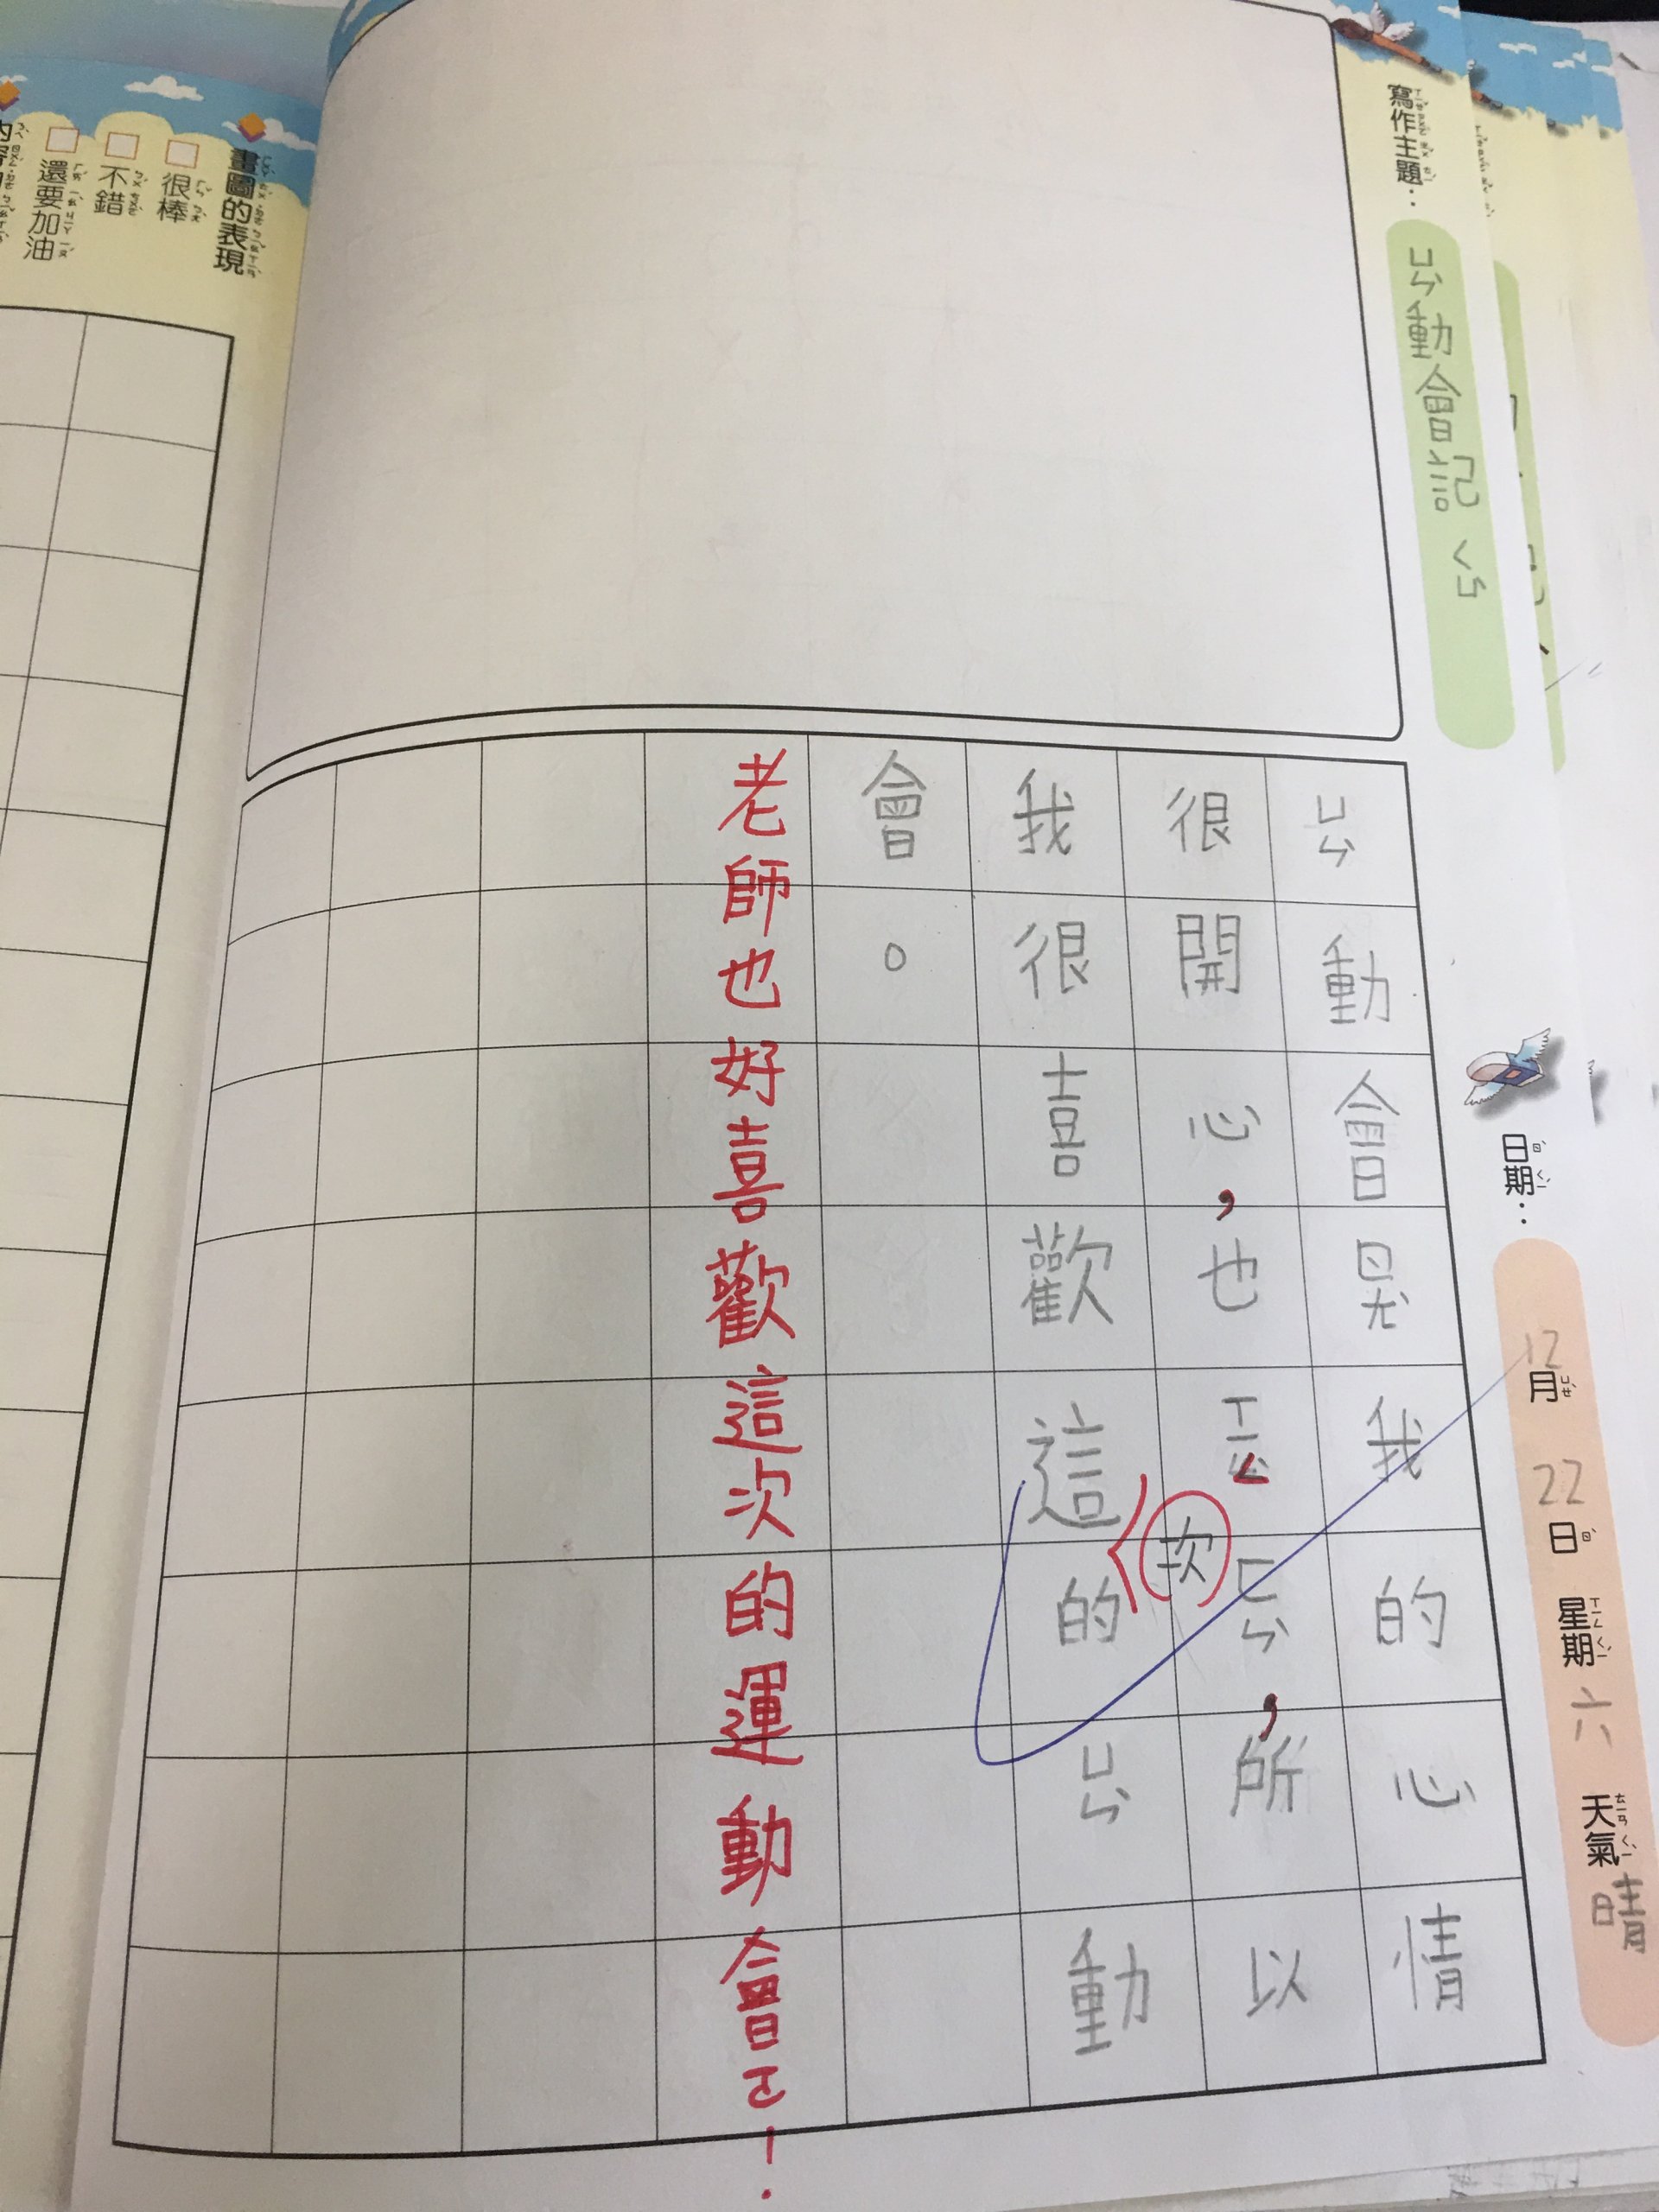 寫作主題：ㄩㄣ動會記
日期：12月22日 星期六 天氣晴
ㄩㄣ動會ㄖㄤ我的心情
很開心，也ㄒㄧㄥㄈㄣ，所以
我很喜歡這次的ㄩㄣ動
會。
老師也好喜歡這次的運動會ㄛ！
畫圖的表現
很棒
不錯
還要加油